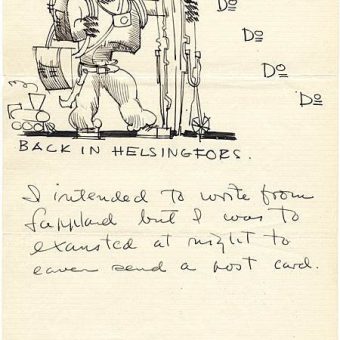 Do
Do
Do
Do
BACK IN HELSINGFORS.
I intended to write from
Lappland but I was to
exausted at night to
eaven send a post card.